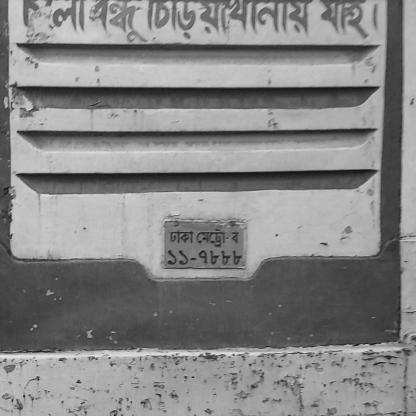 চিড়িয়াখানায় যাই।
ঢাকা মেট্রো-ব
১১-৭৮৮৮